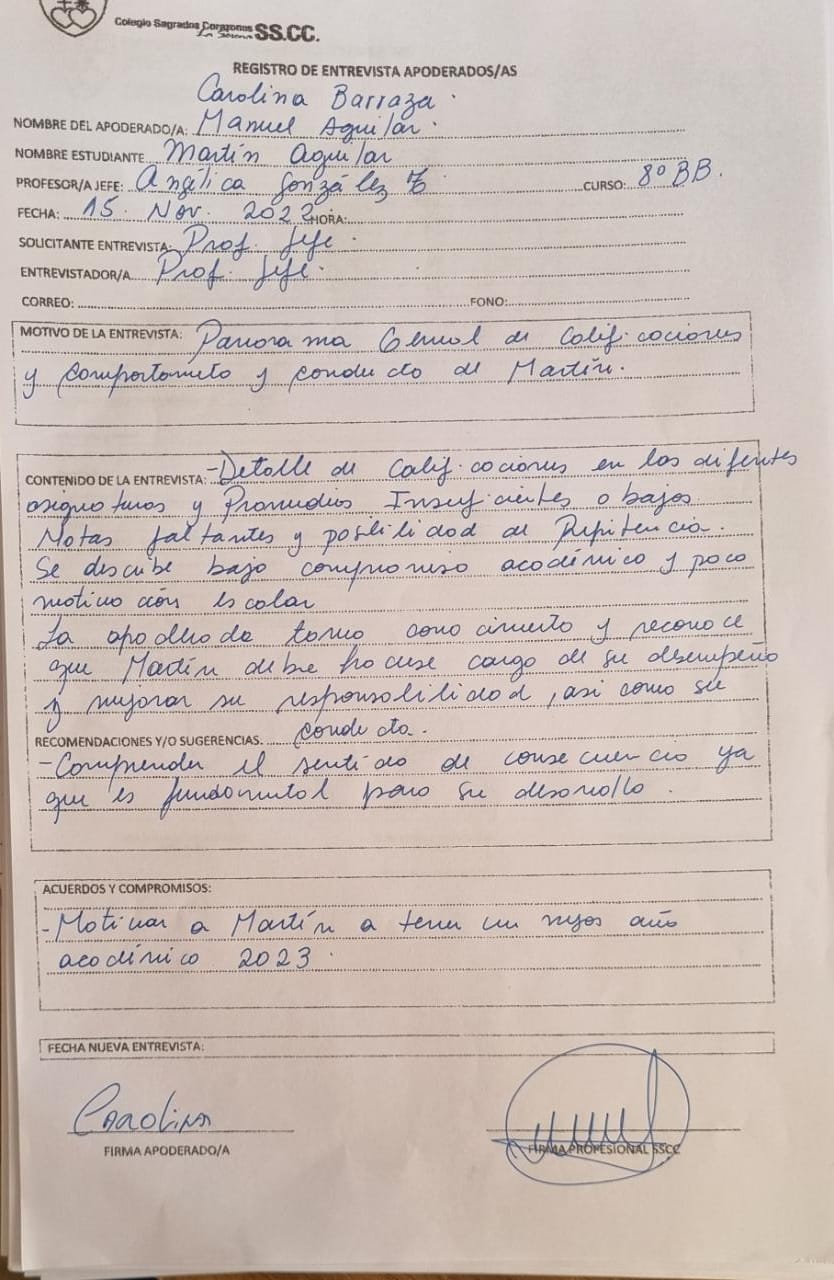 Colegio Sagrados Corazones
La Serena SS.CC.
REGISTRO DE ENTREVISTA APODERADOS/AS
Carolina Barraza.
NOMBRE DEL APODERADO/A: Manuel Aguilar.
NOMBRE ESTUDIANTE Martín Aguilar
PROFESOR/A JEFE: Angélica González Z CURSO: 8º BB.
FECHA: 15. Nov. 2022 HORA:
SOLICITANTE ENTREVISTA: Prof. Jefe.
ENTREVISTADOR/A Prof. Jefe.
CORREO: FONO:
MOTIVO DE LA ENTREVISTA: Panorama General de Calificaciones
y Comportamieto y conducta de Martín.
CONTENIDO DE LA ENTREVISTA: -Detalle de Calificaciones en las difentes
asignaturas y Promedios Insuficientes o bajos
Notas faltantes y posibilidad de Repitencia.
Se describe bajo compromiso académico y poca
motivación escolar
La apoderada toma conocimiento y reconoce
que Martín debe hacerse cargo de su desempeño
y mejorar su responsabilidad, asi como su
conducta.
RECOMENDACIONES Y/O SUGERENCIAS.
-Comprender el sentido de consecuencia ya
que es fundamental para su desarrollo.
ACUERDOS Y COMPROMISOS:
-Motivar a Martín a tener un mejor año
académico 2023.
FECHA NUEVA ENTREVISTA:
CAROLINA
FIRMA APODERADO/A
FIRMA PROFESIONAL SSCC